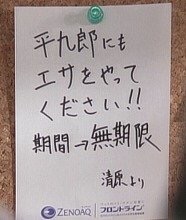 平九郎にも
エサをやって
ください!!
期間→無期限
清原より
ZENOAQ
フロントライン